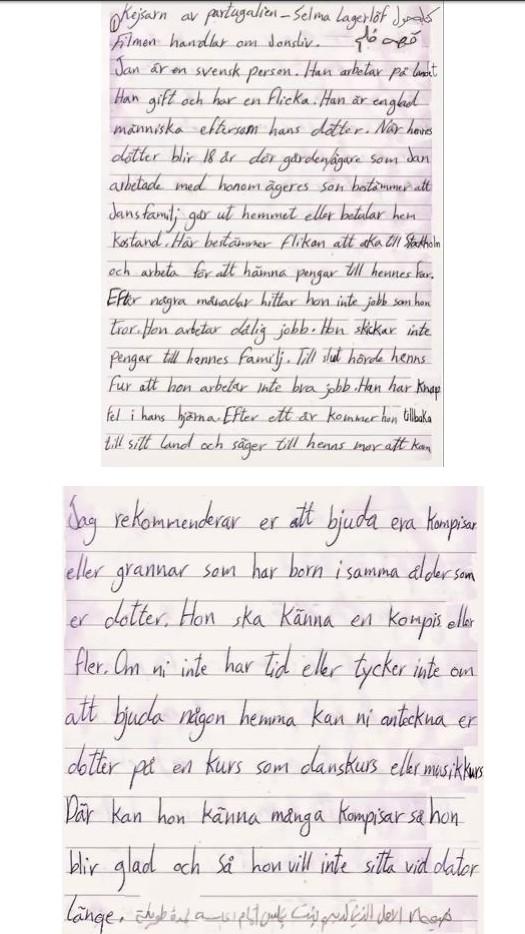 ① Kejsarn av partugalien - Selma Lagerlöf
Filmen handlar om Jonsliv.
Jan är en svensk person. Han arbetar på landet
Han gift och har en flicka. Han är englad
människa eftersom hans dotter. När hennes
dotter blir 18 år dör gårdenägare som Jan
arbetade med honom ägeres son bestämmer att
Jans familj går ut hemmet eller betalar hem
kostand. Här bestämmer flikan att åka till Stockholm
och arbeta för att hämna pengar till hennes far.
Efter några månadar hittar hon inte jobb som hon
tror. Hon arbetar dålig jobb. Hon skickar inte
pengar till hennes familj. Till slut hörde henns
fur att hon arbetar inte bra jobb. Han har knap
fel i hans hjärna. Efter ett år kommer hon tillbaka
till sitt land och säger till henns mor att kan
Jag rekommenderar er att bjuda era kompisar
eller grannar som har born i samma ålder som
er dotter. Hon ska känna en kompis eller
fler. Om ni inte har tid eller tycker inte om
att bjuda någon hemma kan ni anteckna er
dotter på en kurs som danskurs eller musikkurs
Där kan hon känna många kompisar så hon
blir glad och så hon vill inte sitta vid dator
länge.